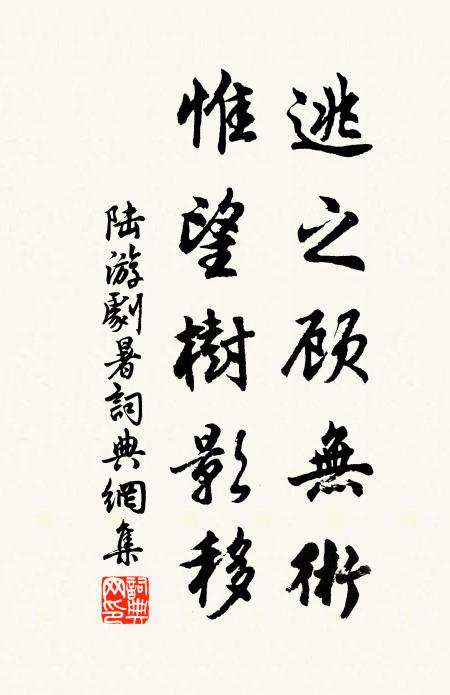 逃之顾無術
惟望樹影移
陆游劇暑詞典網集
詞典网印